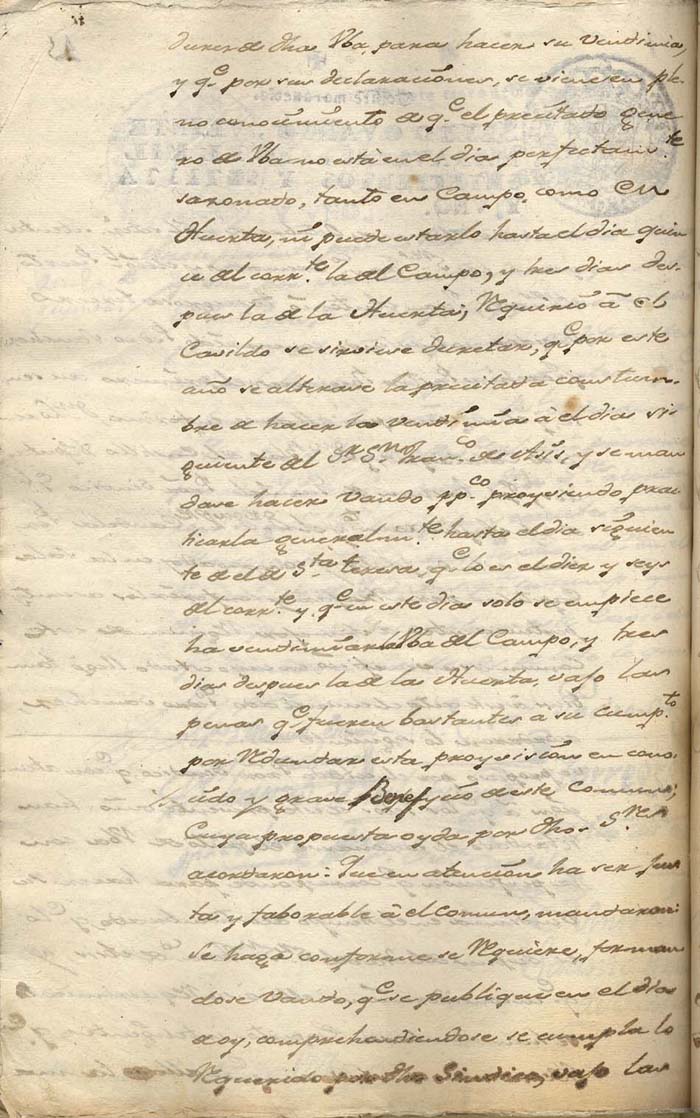 dures de dha Vba, para hacer su Vendimia,
y q.e por sus declaraciones, se viene en ple
no conocimiento de q.e el precitado gene
ro de Vba no està en el dia perfectam.te
sasonado, tanto en Campo, como en
Huerta, ni puede estarlo hasta el dia quin
ce del corr.te la del Campo, y tres dias des
pues la de la Huerta, Requirió à el
Cavildo se sirviese decretar, q.e por este
año se alterase la precitada costum
bre de hacer la Vendimia à el dia si
guiente del S.r S.n Fran.co de Asis, y se man
dase hacer Vando pp.co proyviendo prac
ticarla generalm.te hasta el dia siguien
te de el de S.ta teresa, q.e lo es el diez y seys
del corr.te y q.e en este dia solo se empiece
ha vendimiar la Vba del Campo, y tres
dias despues la de la Huerta, vajo las
penas q.e fueren bastantes a su cumpl.to
por Redundar esta proyvision en cono
cido y grave Beneficio de este Comun;
Cuya propuesta oyda por dhos S.res
acordaron: Que en atencion ha ser jus
ta y faborable à el comun, mandaron
se haga conforme se Requiere, forman
dose Vando, q.e se publique en el dia
de oy, comprehendiendose se cumpla lo
Requerido por dho Sindico, vajo las